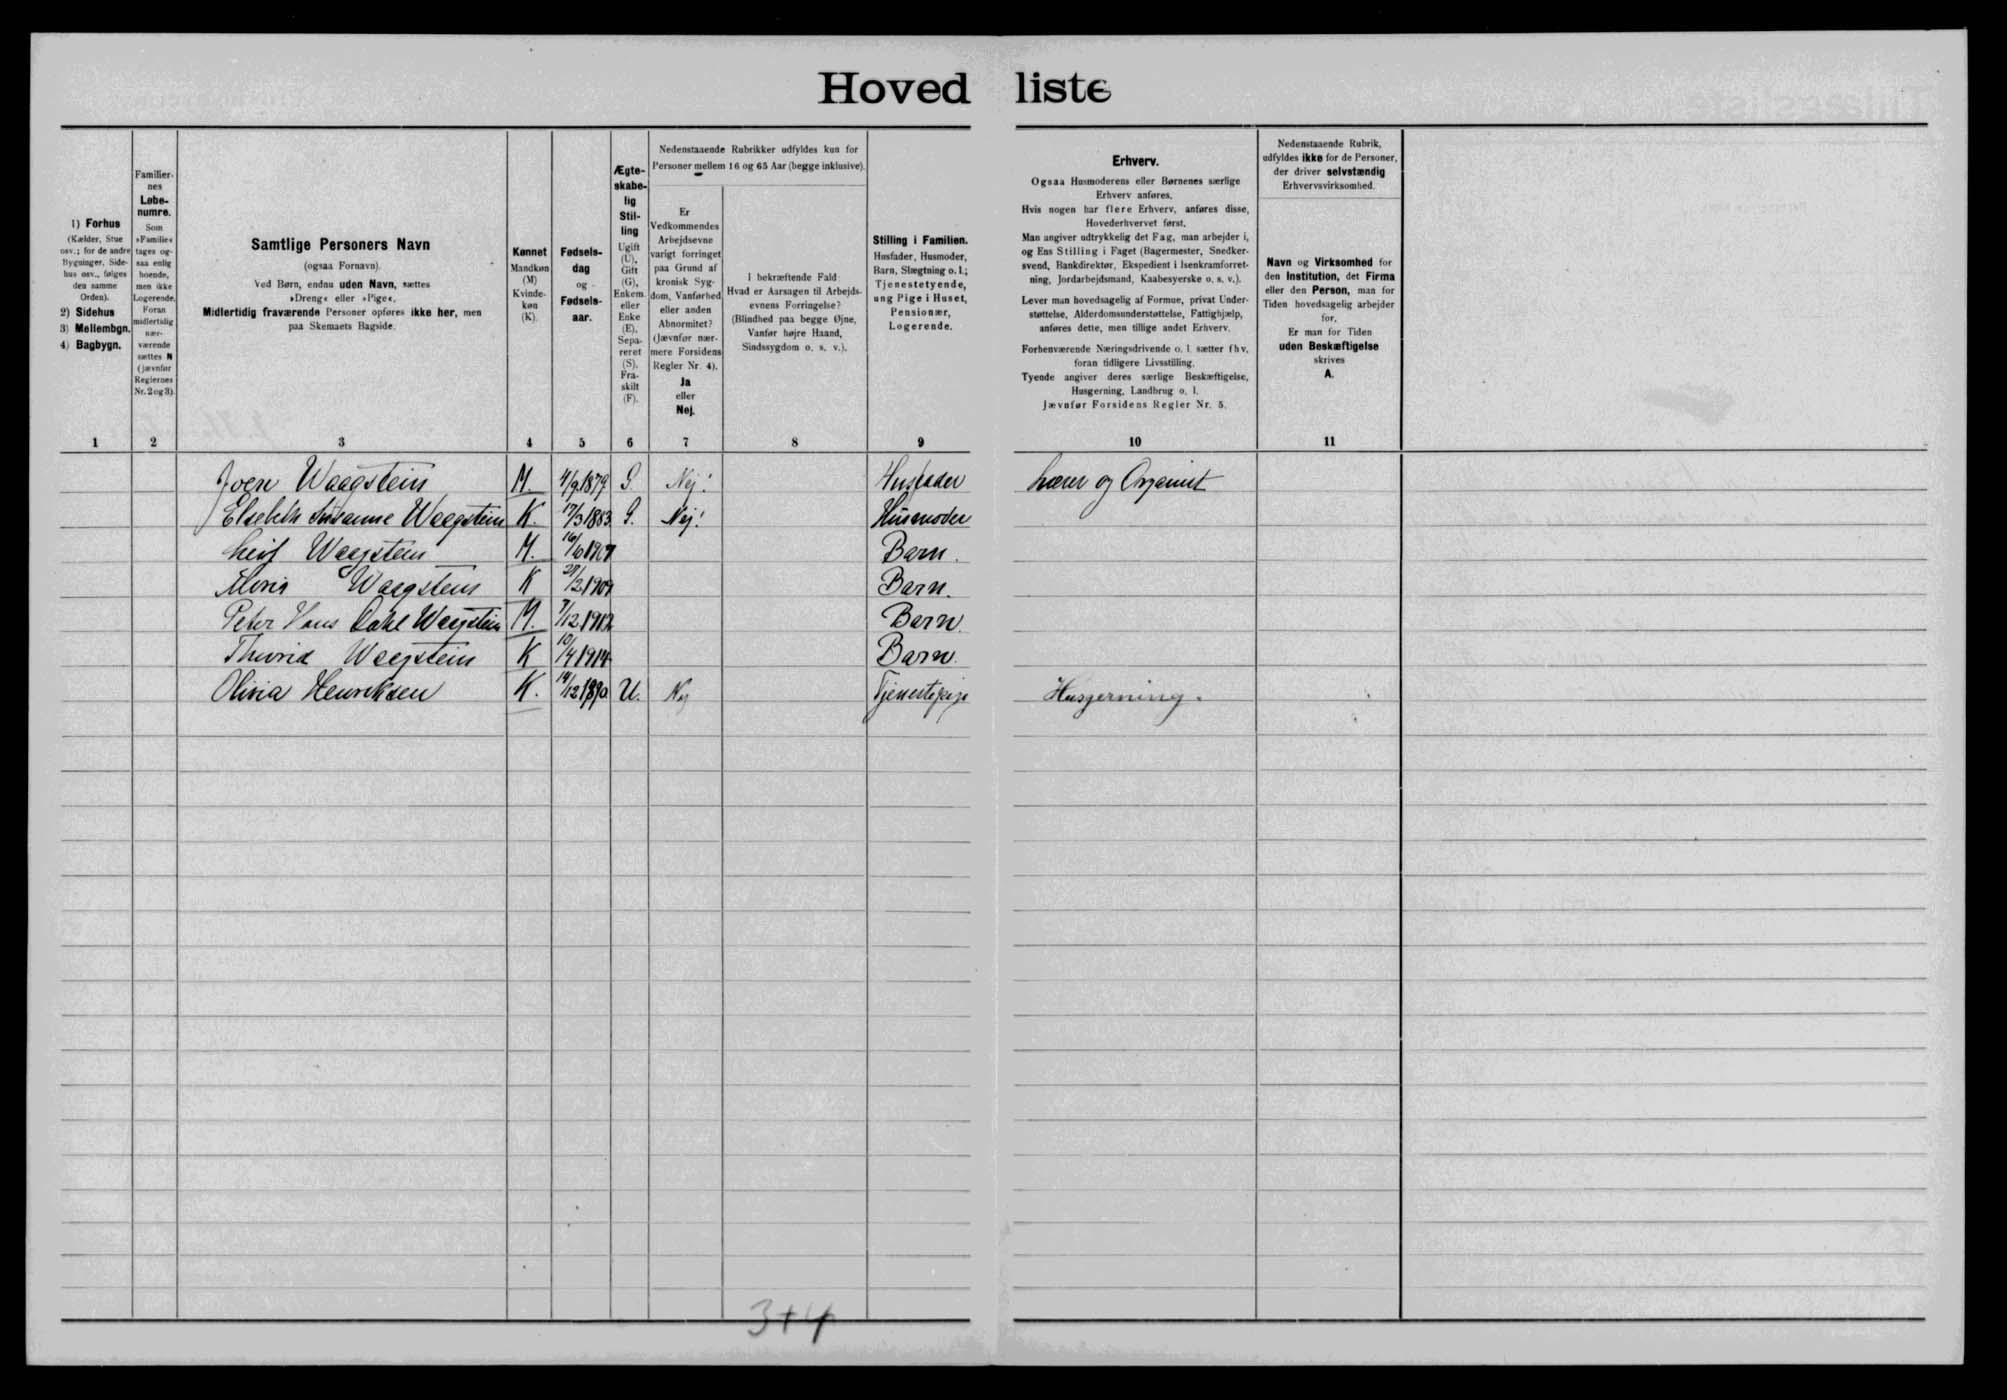 Hovedliste
1) Forhus
(Kælder, Stue
osv.; for de andre
Bygninger, Side-
hus osv., følges
den samme
Orden).
2) Sidehus
3) Mellembgn.
4) Bagbygn.
1
Familier-
nes
Løbe-
numre.
Som
»Familie«
tages og-
saa enlig
boende,
men ikke
Logerende.
Foran
midlertidig
nær-
værende
sættes N
(jævnfør
Reglernes
Nr. 2 og 3).
2
Samtlige Personers Navn
(ogsaa Fornavn).
Ved Børn, endnu uden Navn, sættes
»Dreng« eller »Pige«.
Midlertidig fraværende Personer opføres ikke her, men
paa Skemaets Bagside.
3
Kønnet
Mandkøn
(M)
Kvinde-
køn
(K).
4
Fødsels-
dag
og
Fødsels-
aar.
5
Ægte-
skabe-
lig
Stil-
ling
Ugift
(U),
Gift
(G),
Enkem.
eller
Enke
(E),
Sepa-
reret
(S),
Fra-
skilt
(F).
6
Nedenstaaende Rubrikker udfyldes kun for
Personer mellem 16 og 65 Aar (begge inklusive).
Er
Vedkommendes
Arbejdsevne
varigt forringet
paa Grund af
kronisk Syg-
dom, Vanførhed
eller anden
Abnormitet?
(Jævnfør nær-
mere Forsidens
Regler Nr. 4).
Ja
eller
Nej.
7
I bekræftende Fald:
Hvad er Aarsagen til Arbejds-
evnens Forringelse?
(Blindhed paa begge Øjne,
Vanfør højre Haand,
Sindssygdom o. s. v.).
8
Stilling i Familien.
Husfader, Husmoder,
Barn, Slægtning o. l.;
Tjenestetyende,
ung Pige i Huset,
Pensionær,
Logerende.
9
Erhverv.
Ogsaa Husmoderens eller Børnenes særlige
Erhverv anføres.
Hvis nogen har flere Erhverv, anføres disse,
Hovederhvervet først.
Man angiver udtrykkelig det Fag, man arbejder i,
og Ens Stilling i Faget (Bagermester, Snedker-
svend, Bankdirektør, Ekspedient i Isenkramforret-
ning, Jordarbejdsmand, Kaabesyerske o. s. v.).
Lever man hovedsagelig af Formue, privat Under-
støttelse, Alderdomsunderstøttelse, Fattighjælp,
anføres dette, men tillige andet Erhverv.
Forhenværende Næringsdrivende o. l. sætter fhv.
foran tidligere Livsstilling.
Tyende angiver deres særlige Beskæftigelse,
Husgerning, Landbrug o. l.
Jævnfør Forsidens Regler Nr. 5.
10
Nedenstaaende Rubrik,
udfyldes ikke for de Personer,
der driver selvstændig
Erhvervsvirksomhed.
Navn og Virksomhed for
den Institution, det Firma
eller den Person, man for
Tiden hovedsagelig arbejder
for.
Er man for Tiden
uden Beskæftigelse
skrives
A.
11
Joen Waagstein M. 4/9 1879 G. Nej! Husfader Lærer og Organist
Elsebeth Susanne Waagstein K. 17/3 1883 G. Nej! Husmoder
Leif Waagstein M. 16/6 1907 Barn.
Waagstein K 2 1909 Barn.
Peter Hans Dahl Waagstein M. 7/12 1912 Barn.
Thurid Waagstein K 10/4 1914 Barn.
Olivia Henriksen K. 14/12 1890 U. Nej Tjenestepige Husgerning.
3+4